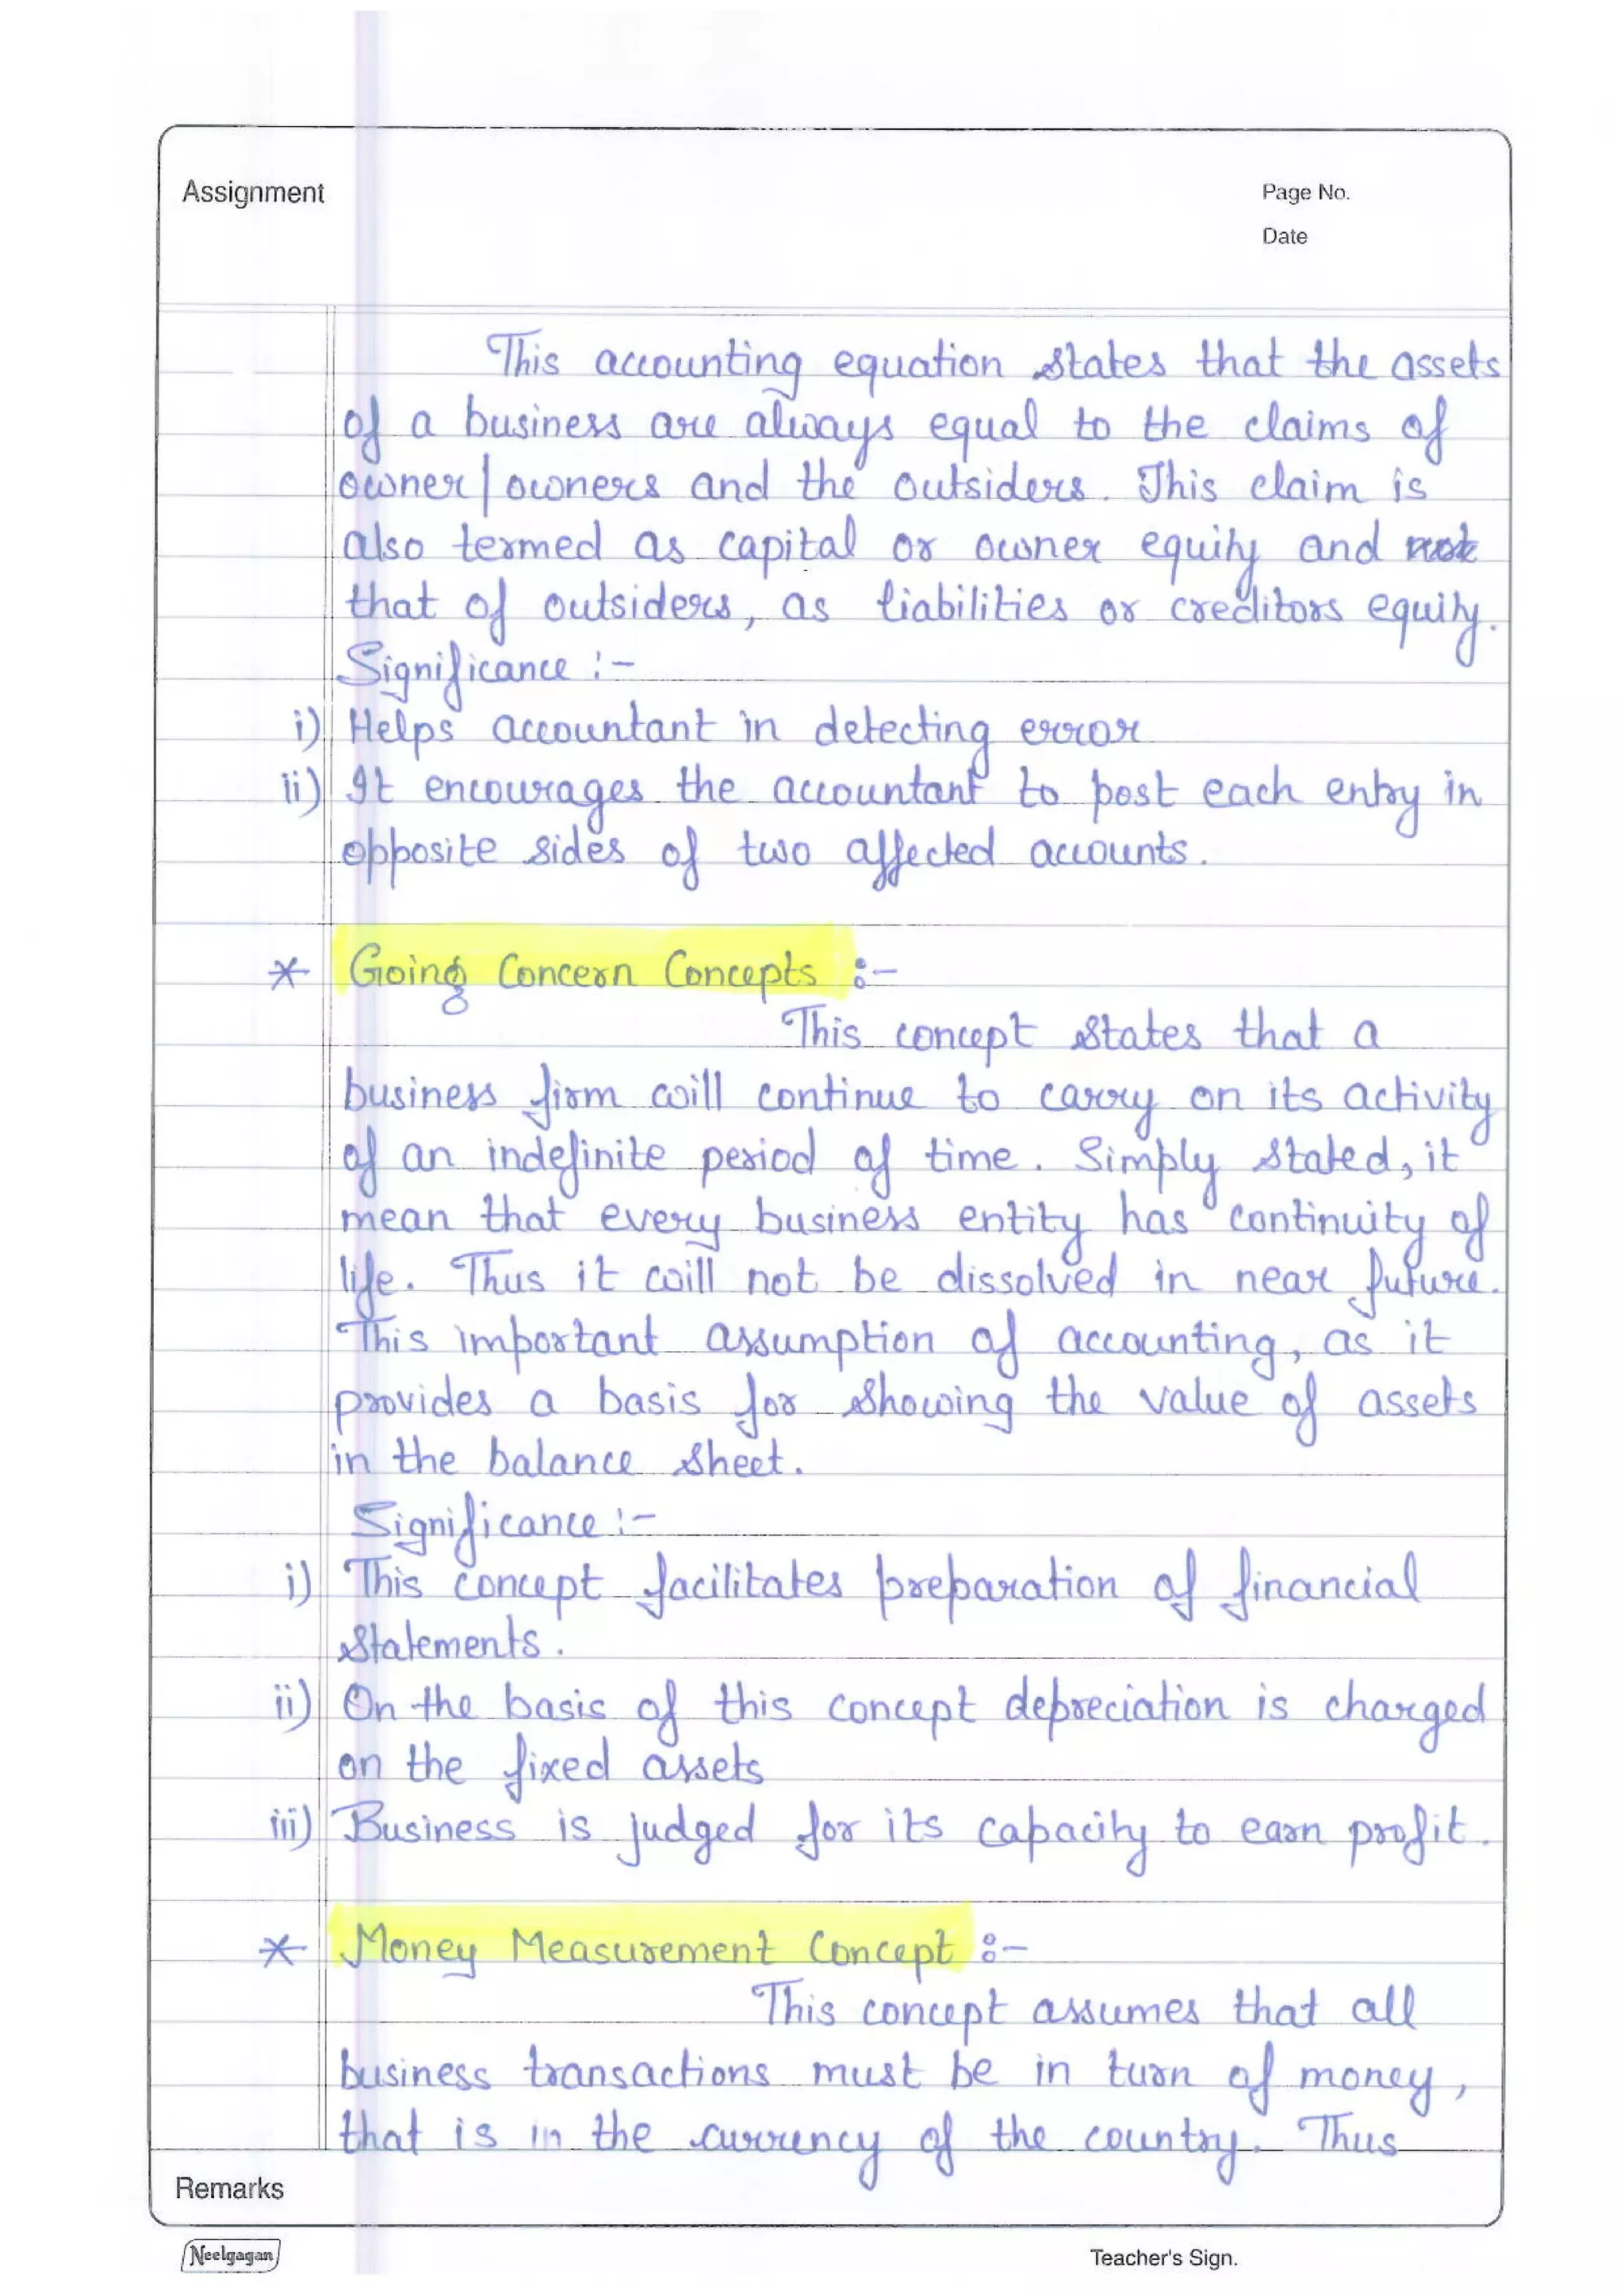 Assignment
Page No.
Date
This accounting equation states that the assets
of a business are always equal to the claims of
owner/owners and the outsiders. This claim is
also termed as capital or owner equity and
that of outsiders, as liabilities or creditors equity.
Significance :-
i) Helps accountant in detecting error
ii) It encourages the accountant to post each entry in
opposite sides of two affected accounts.
* Going Concern Concepts :-
This concept states that a
business firm will continue to carry on its activity
of an indefinite period of time. Simply stated, it
mean that every business entity has continuity of
life. Thus it will not be dissolved in near future.
This important assumption of accounting, as it
provides a basis for showing the value of assets
in the balance sheet.
Significance :-
i) This concept facilitates preparation of financial
statements.
ii) On the basis of this concept depreciation is charged
on the fixed assets
iii) Business is judged for its capacity to earn profit.
* Money Measurement Concept :-
This concept assumes that all
business transactions must be in turn of money,
that is in the currency of the country. Thus
Remarks
Neelgagan
Teacher's Sign.